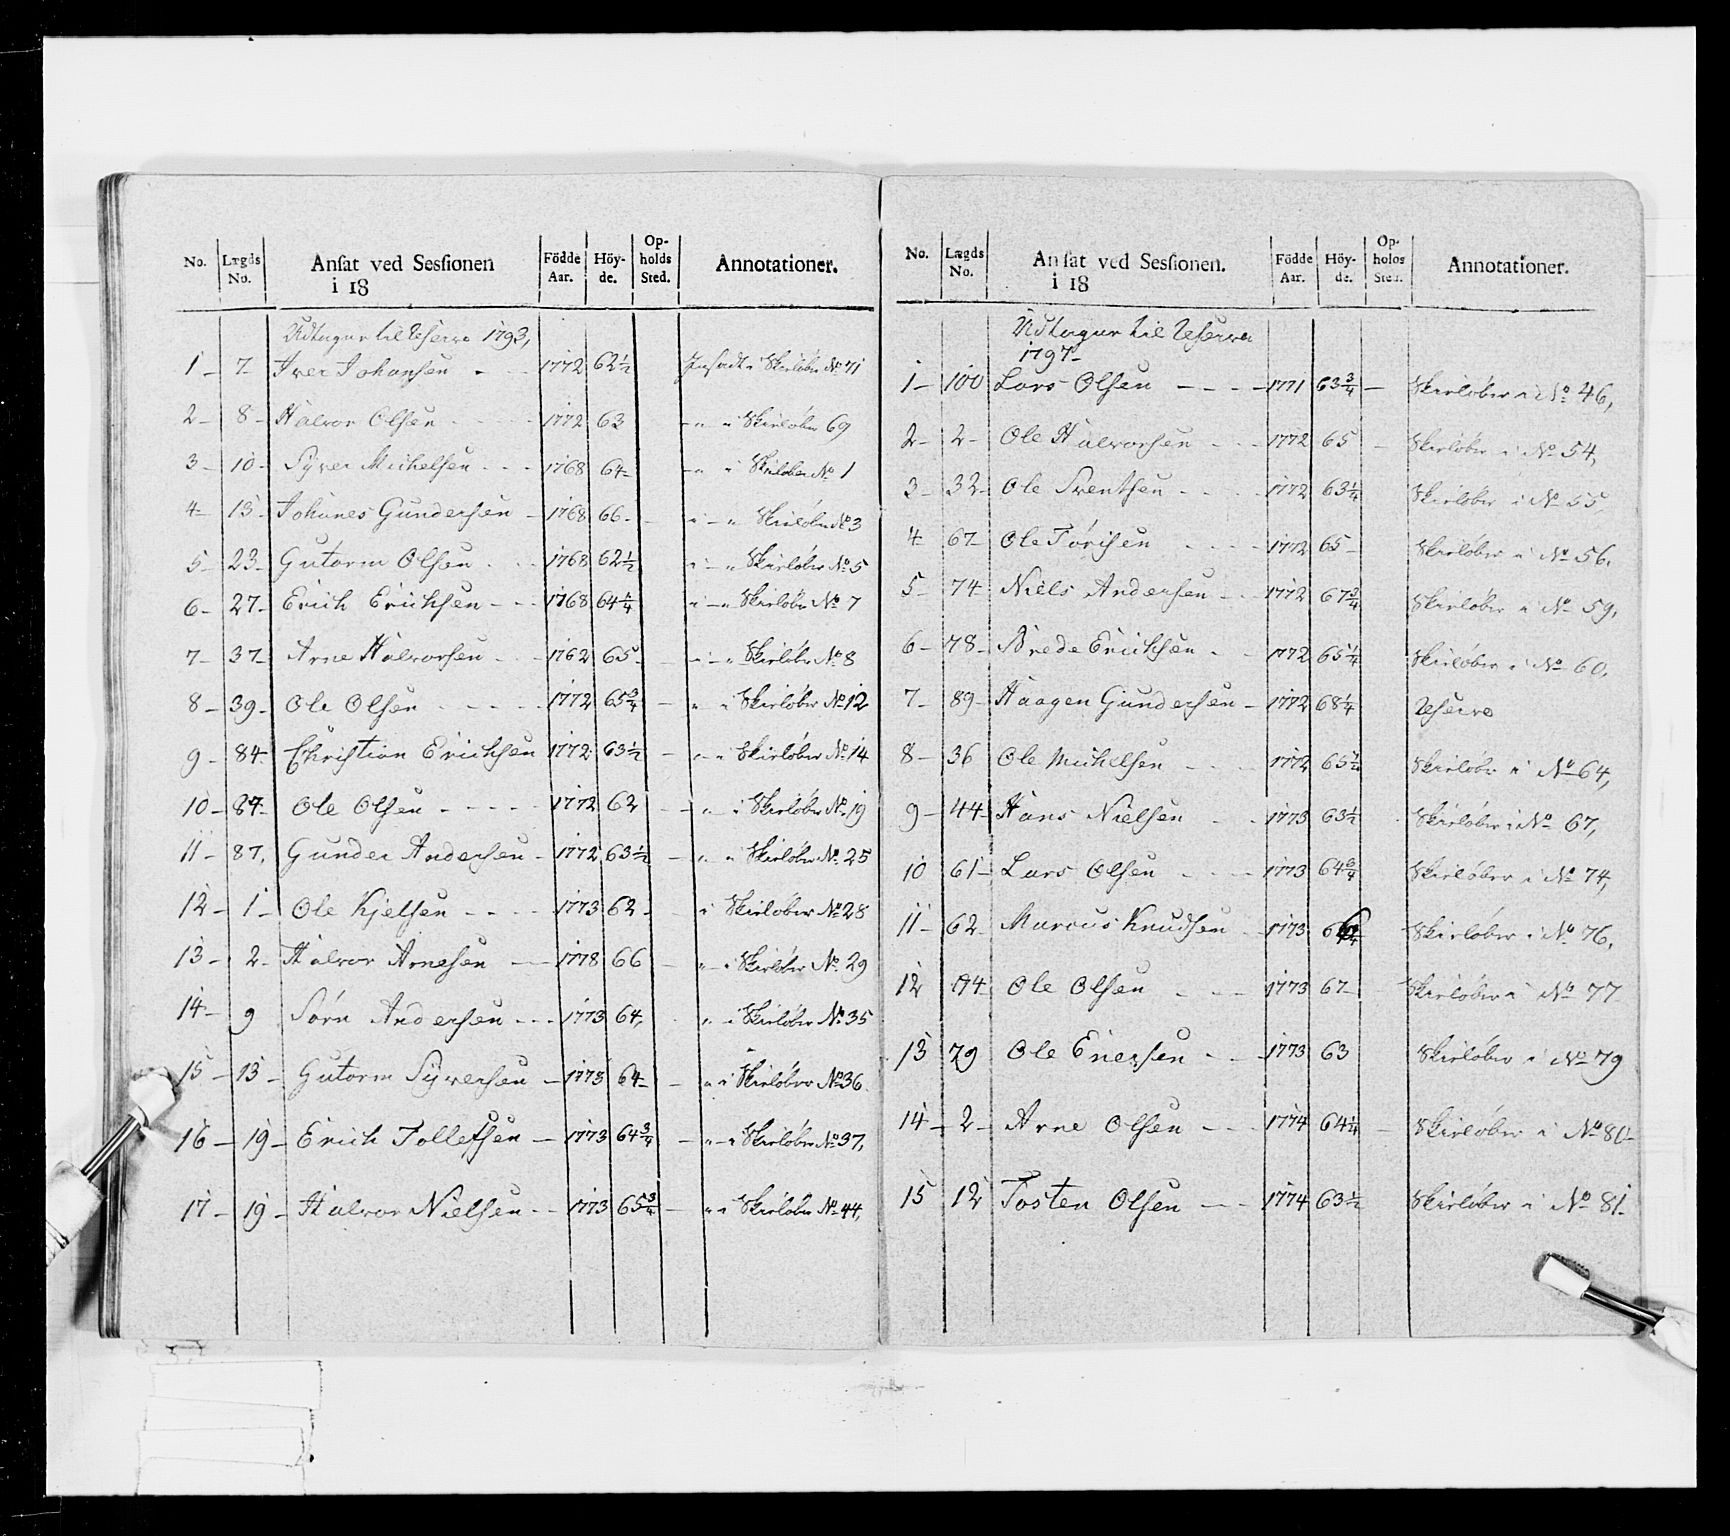 No. Lægds No. Ansat ved Sessionen i 18 Födde Aar. Höy-de. Op-holds Sted. Annotationer.
Udtagne til Reserve 1793,
1 - 7 - Iver Johansen - - 1772 62½ Indsadt i Skieløber No 71
2 - 8 - Halvor Olsen - - - - 1772 63 - " i Skieløber 69
3 - 10 - Syver Michelsen - - - 1768 64 - - " i Skieløber No 1
4 - 13 - Johanes Gundersen - 1768 66 - - " - " Skieløber No 3
5 - 23 - Gutorm Olsen - - 1768 62½ " - " Skieløber No 5
6 - 27 - Erich Erichsen - - - 1768 64¼ " - " Skieløber No 7
7 - 37 - Arne Halvorsen - - - 1762 65 - - " - " Skieløber No 8
8 - 39 - Ole Olsen - - - - - 1772 65¾ - " i Skieløber No 12
9 - 84 - Christian Erichsen 1772 63½ - " - " Skieløber No 14
10 - 84 - Ole Olsen - - - - - 1772 62 - " - i Skieløber No 19
11 - 87, Gunder Andersen - 1772 63½ - " " Skieløber No 25
12 - 1 - Ole Kjelsen - - - - 1773 62 - i Skieløber No 28
13 - 2 - Halvor Arnesen - - 1773 66 - " - i Skieløber No 29
14 - 9 Sørn Andersen - - - 1773 64, " - i Skieløber No 35
15 - 13 - Gutorm Syversen - 1773 64 - - " i Skieløber No 36.
16 - 19 - Erich Tollefsen - 1773 64¾ - " - i Skieløber No 37,
17 - 19 - Halvor Nielsen - - 1773 65¾ - " i Skieløber No 44,
No. Lægds No. Ansat ved Sessionen. i 18 Födde Aar. Höy-de. Op-holds Sted. Annotationer.
Udtagne til Reserve
1797 -
1 - 100 Lars Olsen - - - - 1771 63¾ - Skieløber i No 46,
2 - 2 - Ole Halvorsen - - - 1772 65 - Skieløber i No 54,
3 - 32 - Ole Svensen - - - - 1772 63¼ Skieløber i No 55,
4 - 67 - Ole - - - - 1772 65 - Skieløber i No 56.
5 - 74 Niels Andersen - - - 1772 67¾ Skieløber i No 59,
6 - 78 - Brede Erichsen - - 1772 65¼ Skieløber i No 60,
7 - 89 - Haagen Gundersen - 1772 68¼ Reserve
8 - 36 Ole Michelsen - - - 1772 65¼ Skieløber i No 64,
9 - 44 - Hans Nielsen - - 1773 63½ - Skieløber i No 67,
10 61 - Lars Olsen - - - - 1773 64¾ Skieløber i No 74,
11 - 62 - Marcus Knudsen - 1773 Skieløber i No 76,
12 74 Ole Olsen - - - 1773 67 - Skieløber i No 77
13 79 Ole Enersen - - - 1773 63 Skieløber i No 79
14 - 2 - Arne Olsen - - - 1774 64¼ - Skieløber i No 80 -
15 12 Tosten Olsen - - - 1774 63½ Skieløber i No 81 -